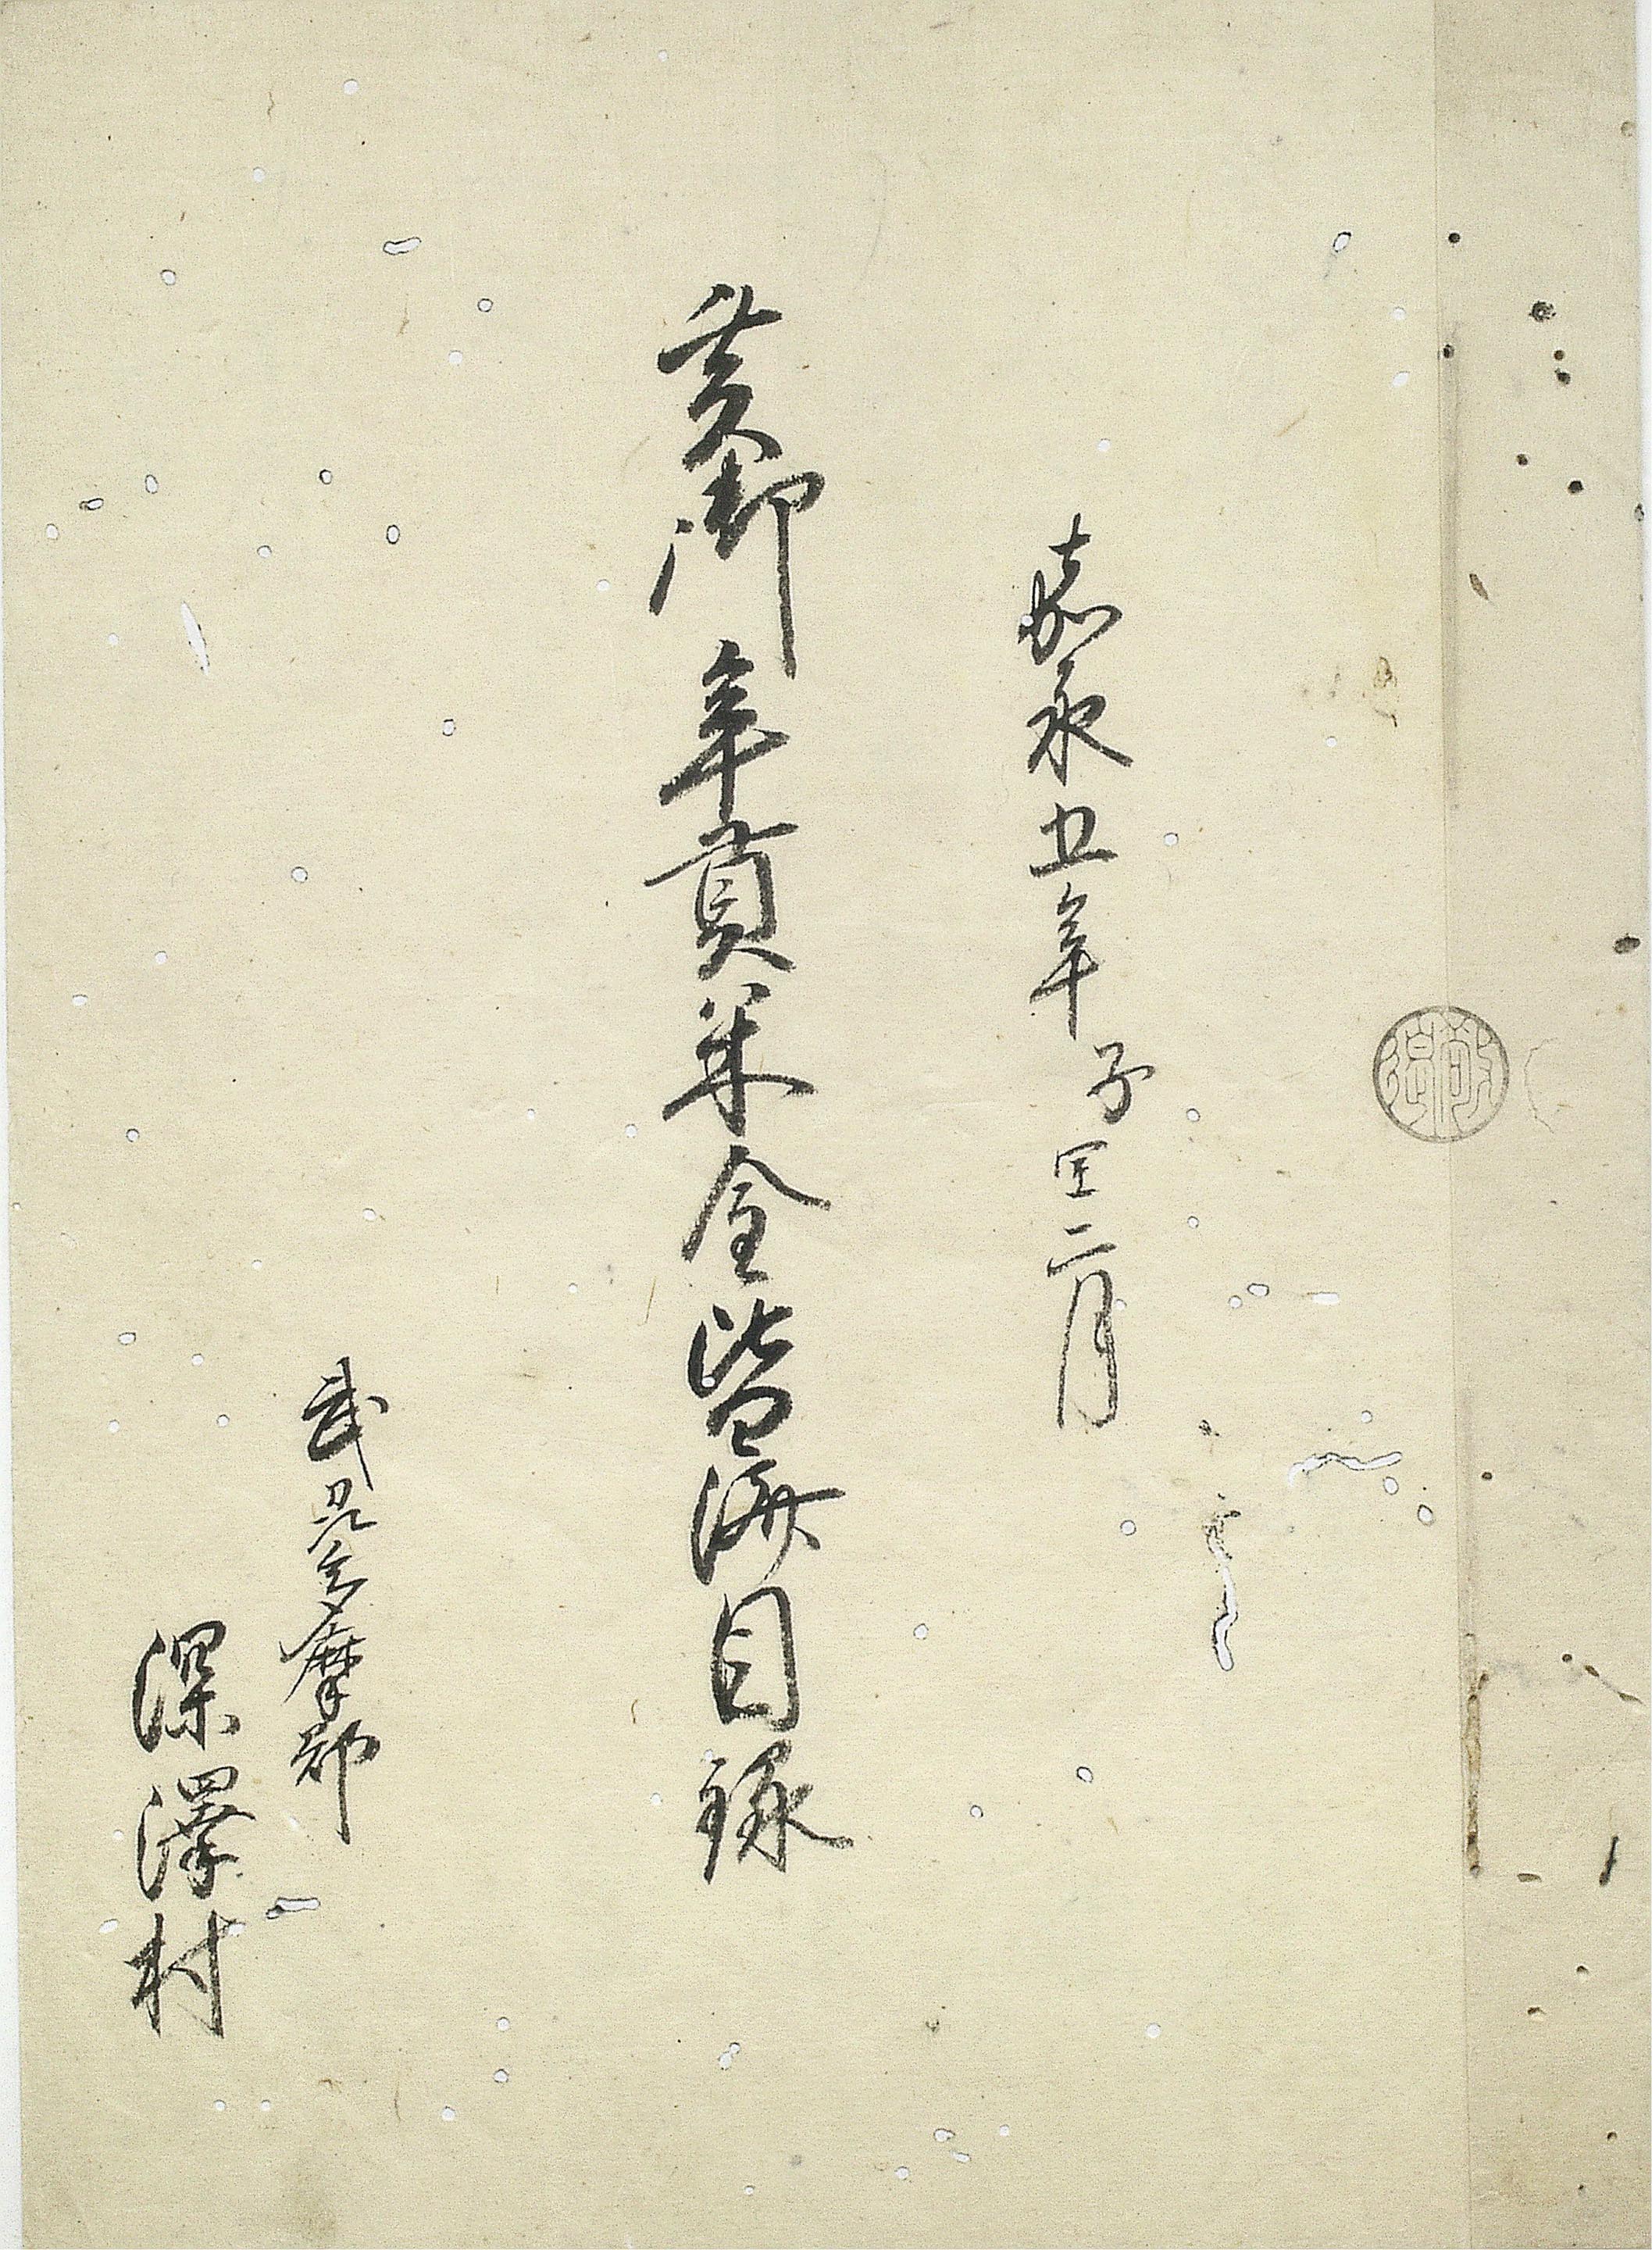 嘉永五年子閏二月
亥御年貢米金皆済目録
武州多摩郡
深澤村